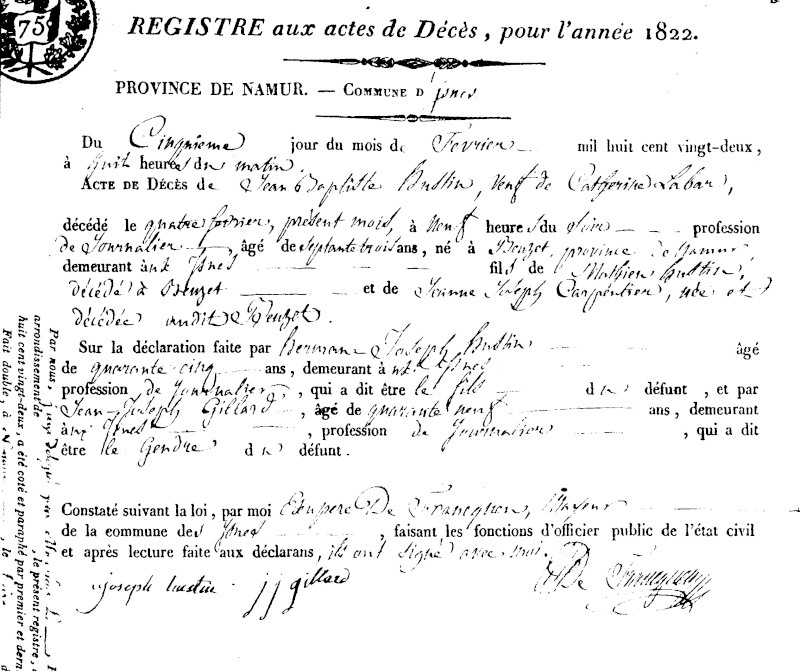 75
REGISTRE aux actes de Décès, pour l'année 1822.
PROVINCE DE NAMUR. — COMMUNE D'Isnes
Du Cinquieme jour du mois de Février mil huit cent vingt-deux,
à huit heures du matin.
ACTE DE DÉCÈS de Jean Baptiste Bustin, veuf de Catherine Labar,
décédé le quatre fevrier, présent mois, à Neuf heures du Soir profession
de Journalier, âgé de septante trois ans, né à Beuzet, province de Namur,
demeurant aux Isnes fils de Mathieu Bustin,
décédé à Beuzet et de Jeanne Joseph Carpentier, née et
décédée audit Beuzet.
Sur la déclaration faite par Herman Joseph Bustin âgé
de quarante cinq ans, demeurant aux Isnes
profession de Journalier, qui a dit être le fils du défunt, et par
Jean-Joseph Gillard, âgé de quarante neuf ans, demeurant
aux Isnes, profession de Journalier, qui a dit
être le Gendre du défunt.
Constaté suivant la loi, par moi De Francquen, Mayeur
de la commune des Isnes, faisant les fonctions d'officier public de l'état civil
et après lecture faite aux déclarans, ils ont signé avec moi.
joseph bustin jj gillard De Francquen
Par nous,
arrondissement de
huit cent vingt-deux, a été coté et paraphé par premier et dern
, le présent registre,
Fait double, à , le